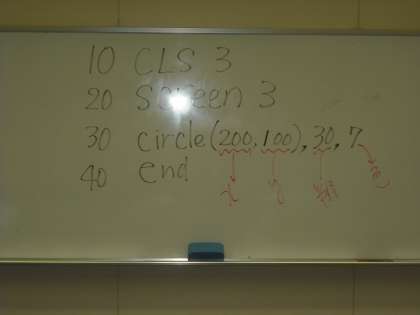 10 CLS 3
20 Screen 3
30 circle(200,100),30,7
40 end
x y 半径 色